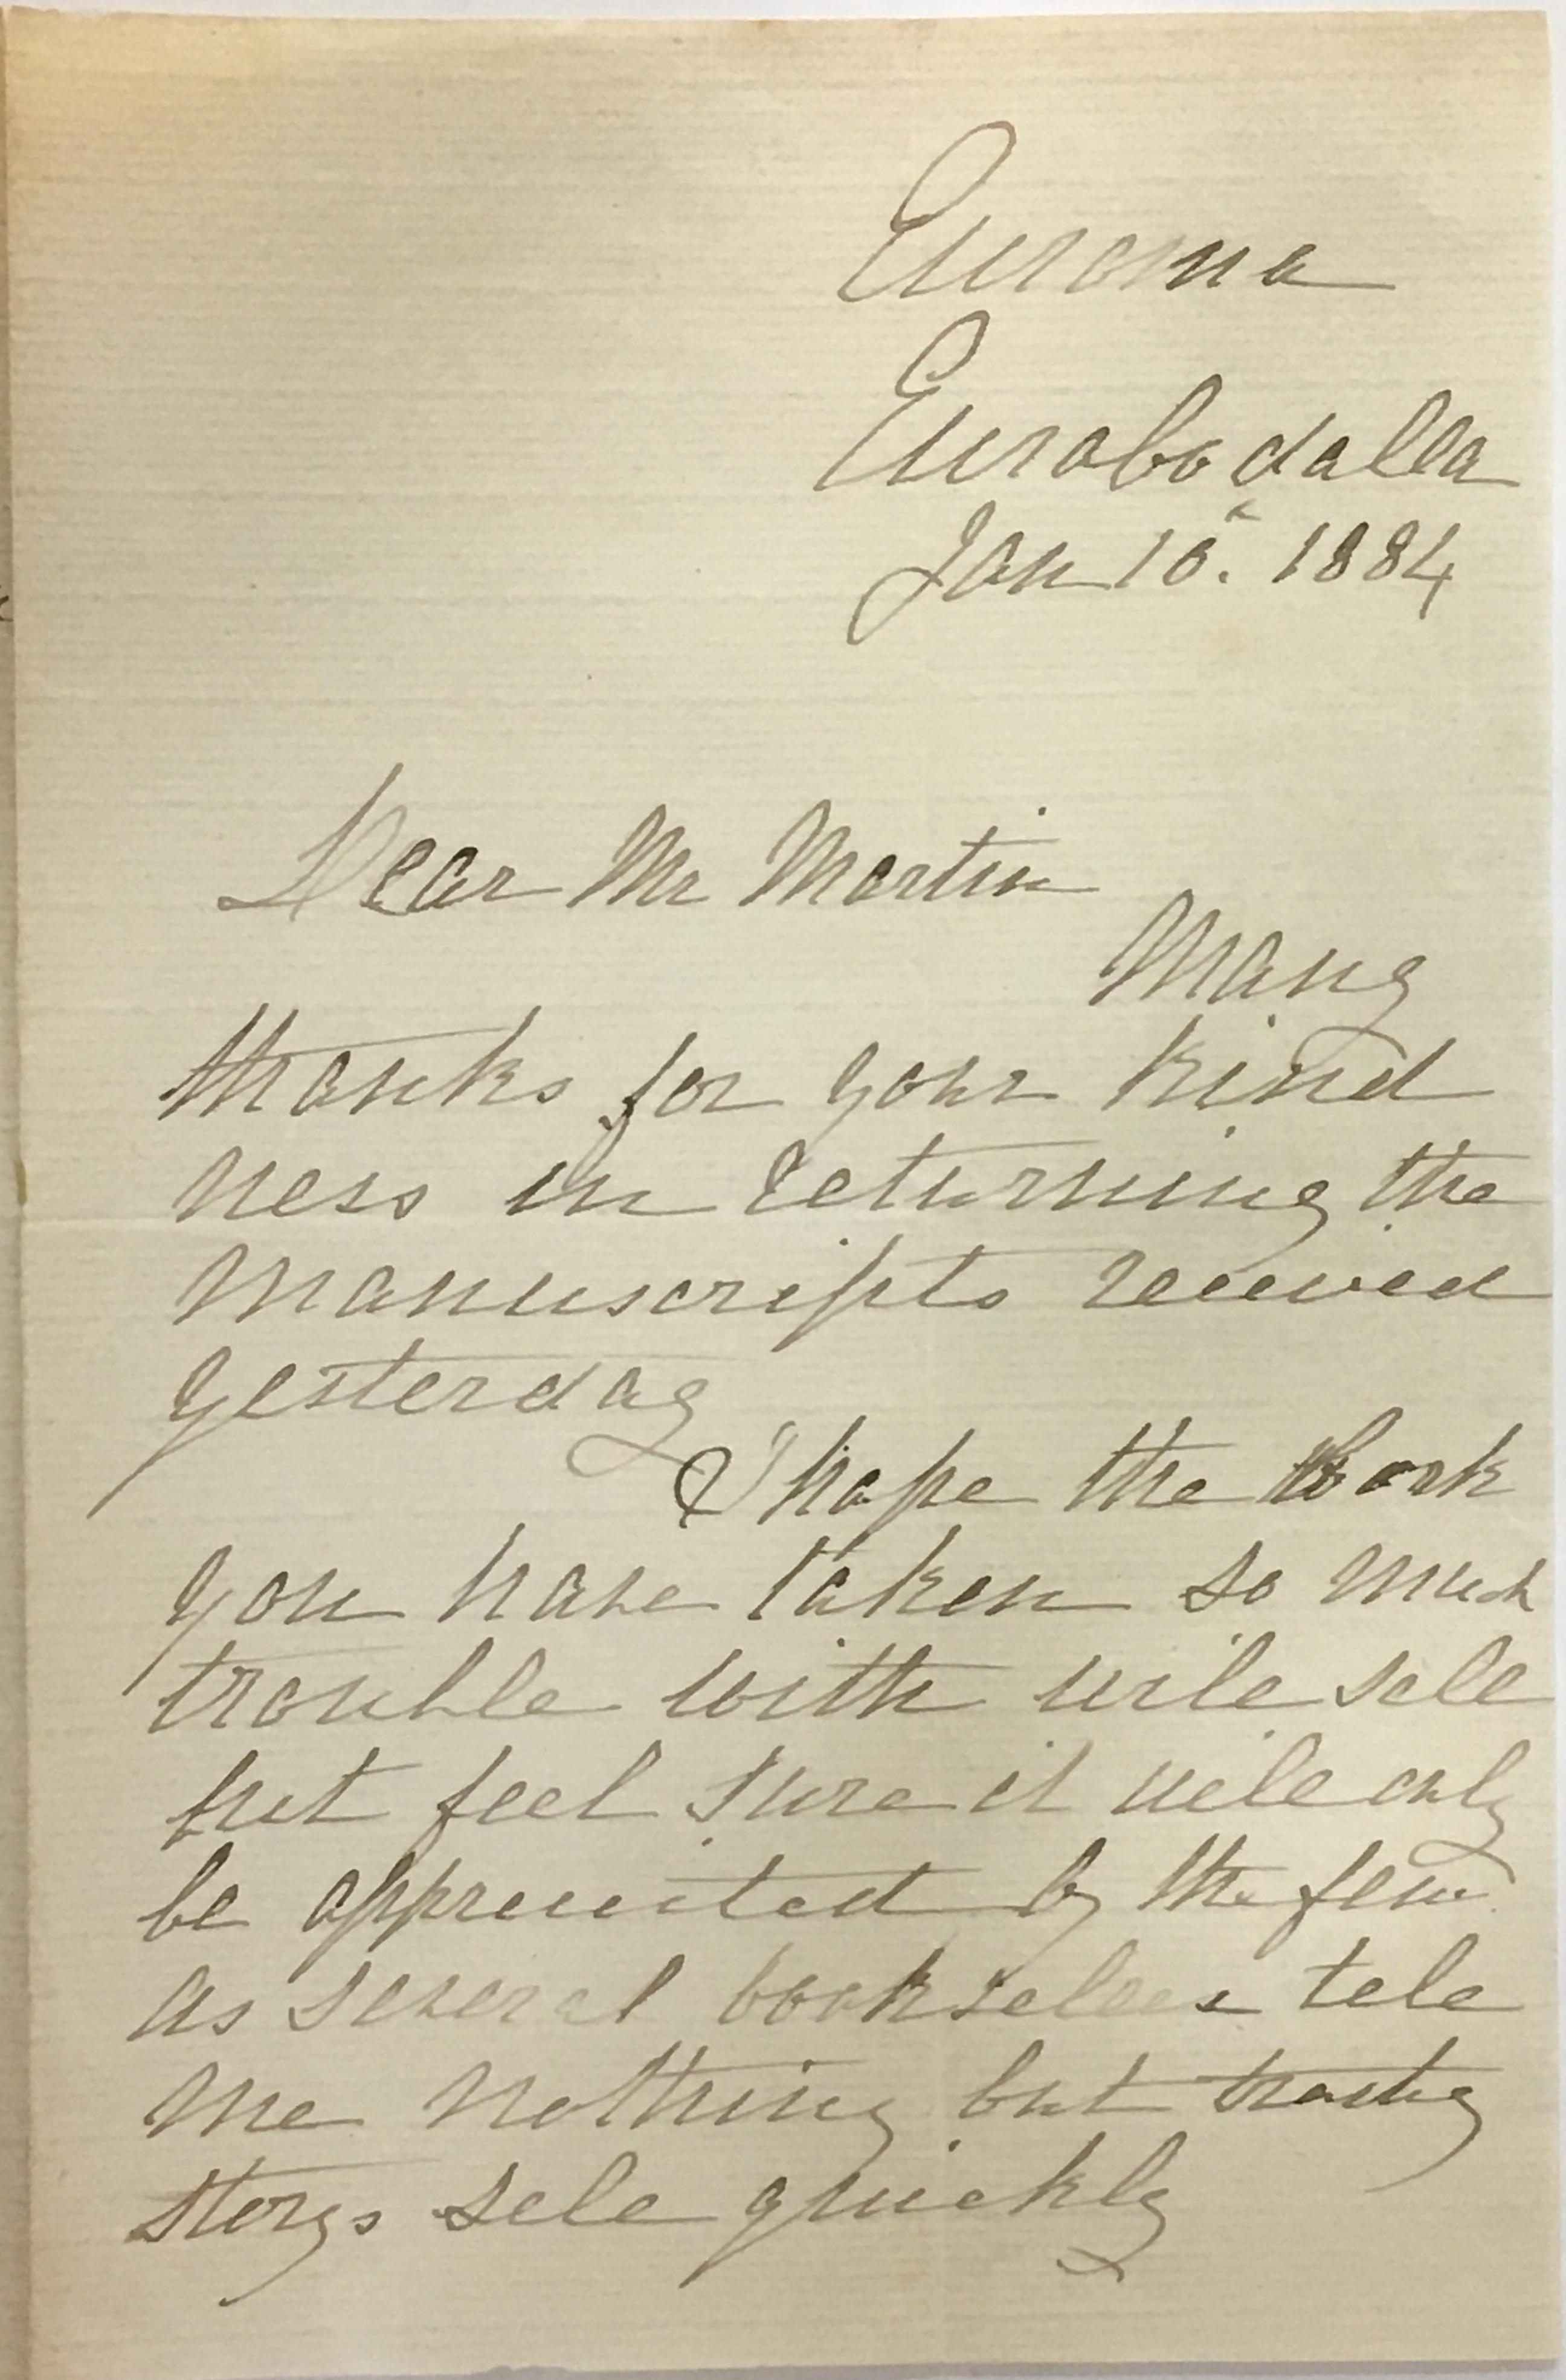 Euroma
Eurobodalla
Jan 10. 1884
Dear Mr Martin
Many
thanks for your kind
ness in returning the
manuscripts received
yesterday
I hope the book
you have taken so much
trouble with will sell
but feel sure it will only
be appreciated by the few
as several booksellers tell
me nothing but trashy
storys sell quickly